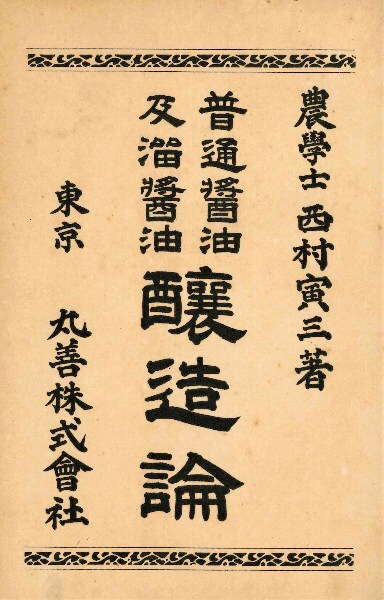 農學士 西村寅三著
普通醬油
及溜醬油
釀造論
東京 丸善株式會社